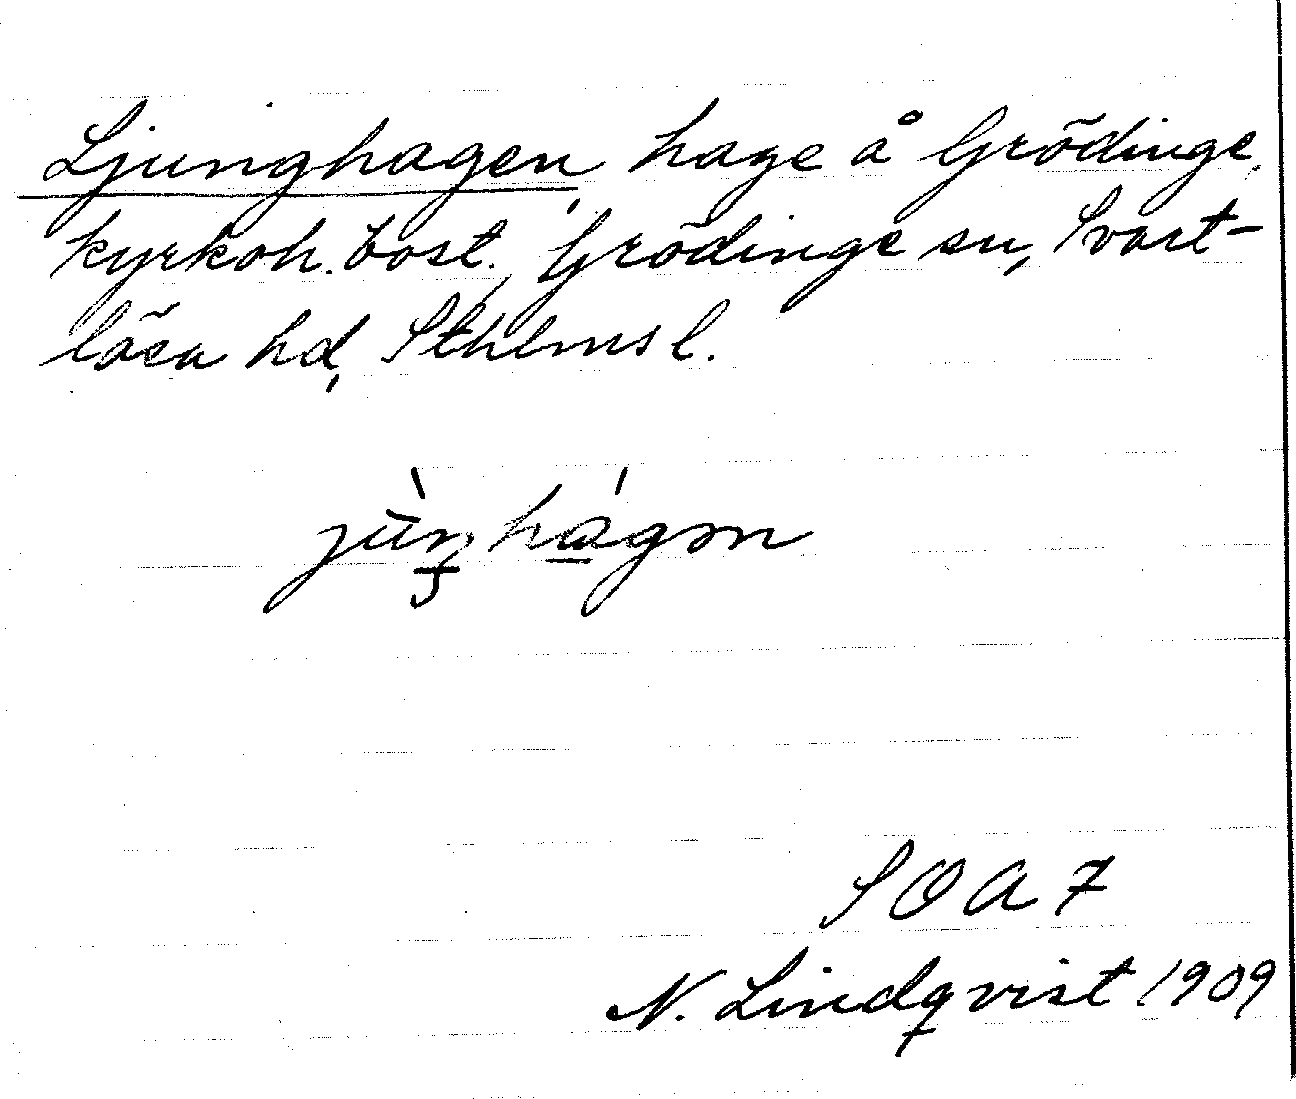 Ljunghagen, hage å Grödinge
kyrkoh. bost., Grödinge sn, Svart-
lösa hd, Sthlms l.
jùŋhágən
SOA 7
N. Lindqvist 1909